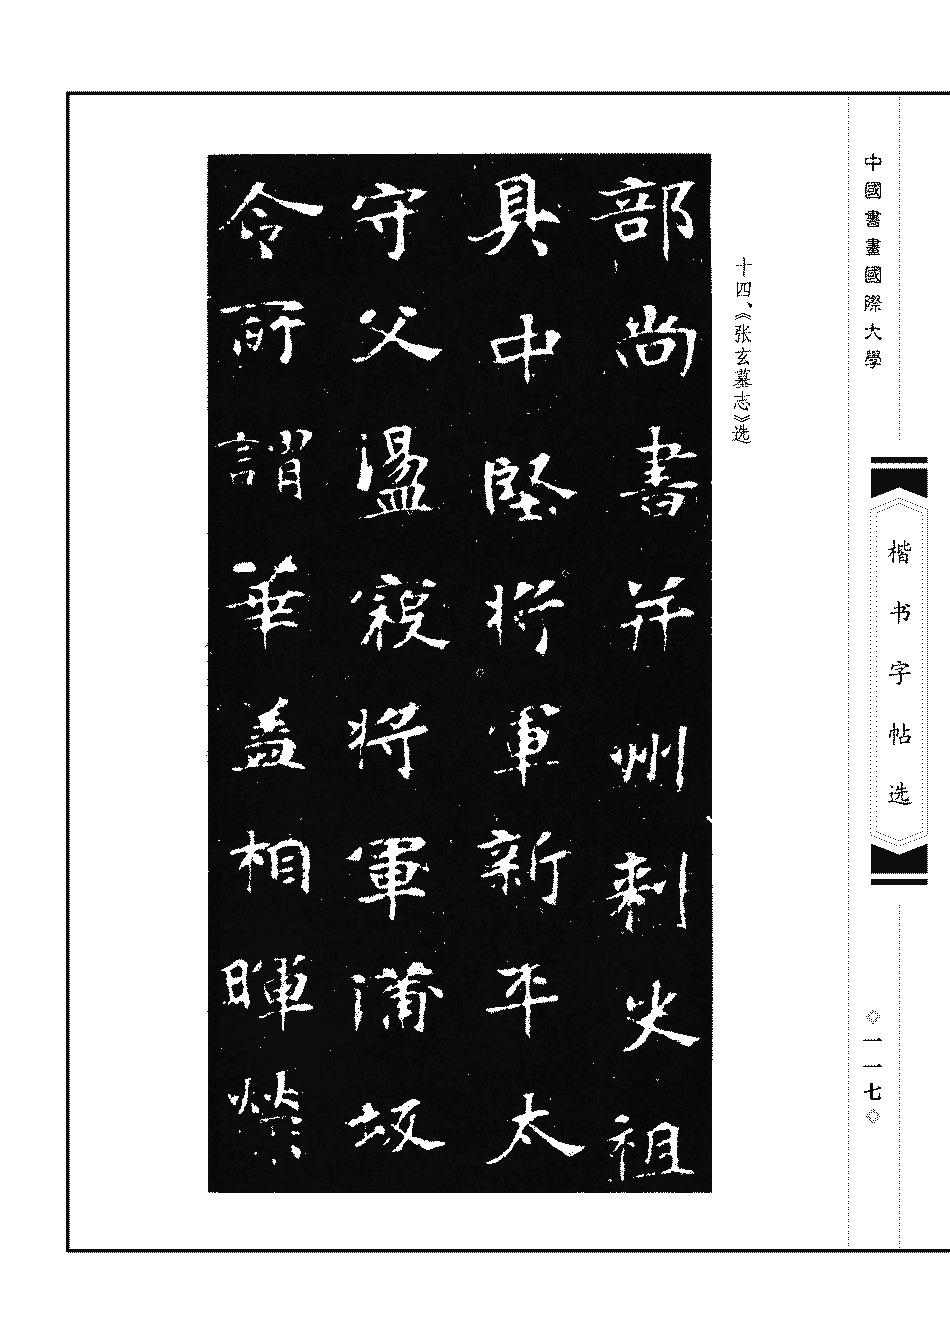 中國書畫國際大學
楷书字帖选
◇一一七◇
十四、《张玄墓志》选
部尚書并州刺史祖
具中堅將軍新平太
守父盪寇將軍蒲坂
令所謂華盖相暉榮